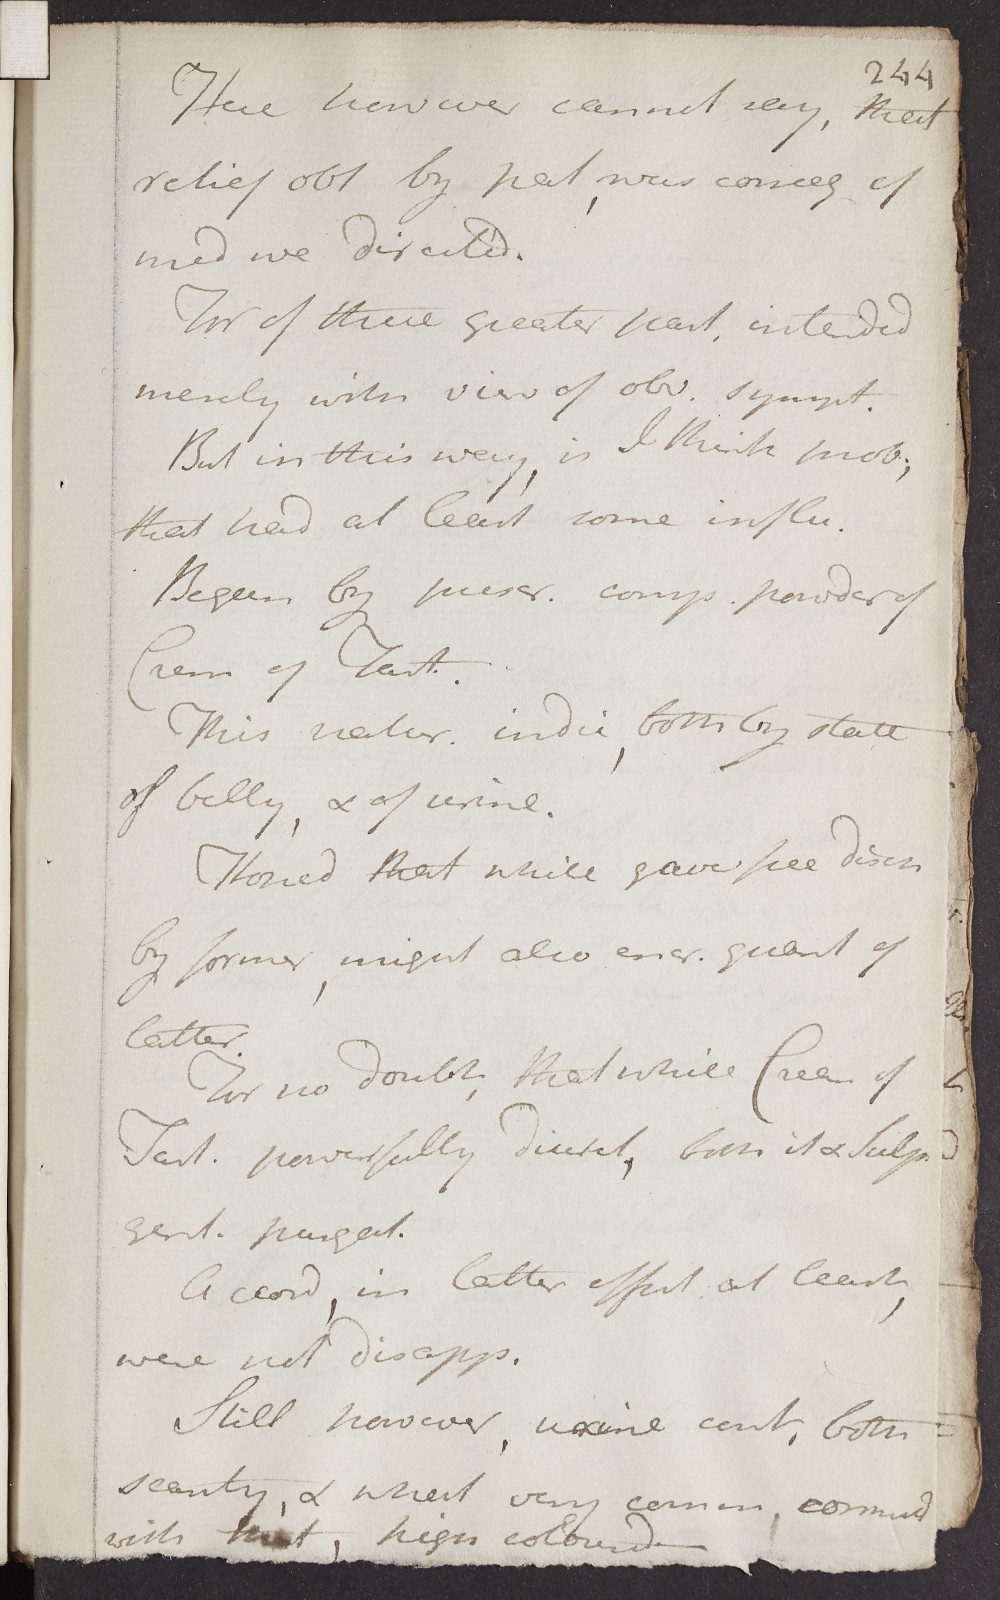 244
Here however cannot say, that
relief obt by pat, was conseq of
med we directed.
For of these greater part, intended
merely with view of obv. sympt.
But in this way, is I think prob,
that had at least some influ.
Began by prescr. comp. powder of
Crem of Tart.
This natur. indic, both by state
of belly, & of urine.
Hoped that while gave free disch
by former, might also encr. quant of
latter.
For no doubt, that while Crem of
Tart. powerfully diuret, both it & Sulph
gent. purgat.
Accord, in latter effect at least,
were not disapp.
Still however, urine cont, both
scanty, & what very comm, connect
with that, high coloured